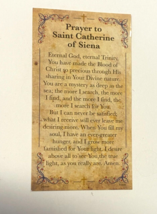 Prayer to
Saint Catherine
of Siena
Eternal God, eternal Trinity,
You have made the Blood of
Christ so precious through His
sharing in Your Divine nature.
You are a mystery as deep as the
sea; the more I search, the more
I find, and the more I find, the
more I search for You.
But I can never be satisfied;
what I receive will ever leave me
desiring more. When You fill my
soul, I have an ever-greater
hunger, and I grow more
famished for Your light. I desire
above all to see You, the true
light, as you really are. Amen.